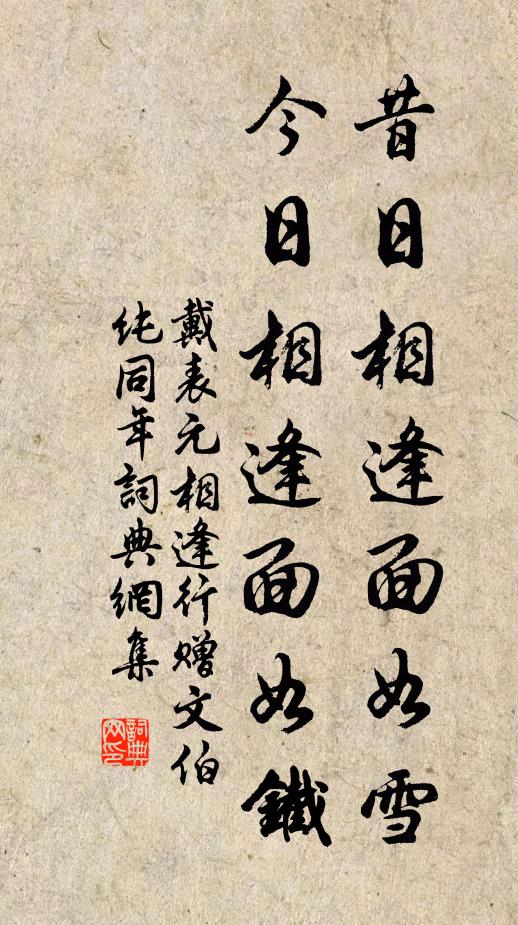 昔日相逢面如雪
今日相逢面如鐵
戴表元相逢行贈文伯
純同年詞典網集
詞典
网印